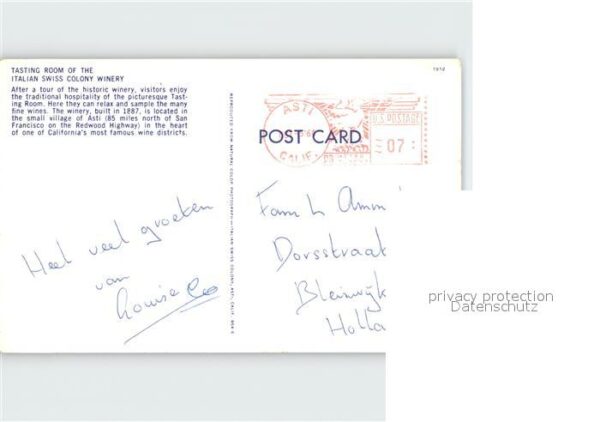 TASTING ROOM OF THE
ITALIAN SWISS COLONY WINERY
After a tour of the historic winery, visitors enjoy
the traditional hospitality of the picturesque Tast-
ing Room. Here they can relax and sample the many
fine wines. The winery, built in 1887, is located in
the small village of Asti (85 miles north of San
Francisco on the Redwood Highway) in the heart
of one of California's most famous wine districts.
Heel veel groeten
van
Louise
REPRODUCED FROM NATURAL COLOR PHOTOGRAPH—ITALIAN SWISS COLONY, ASTI, CALIF.
POST CARD
ASTI
CALIF.
U.S. POSTAGE
07
Fam
Dorsstraat
Bleiswijk
Holla
privacy protection
Datenschutz